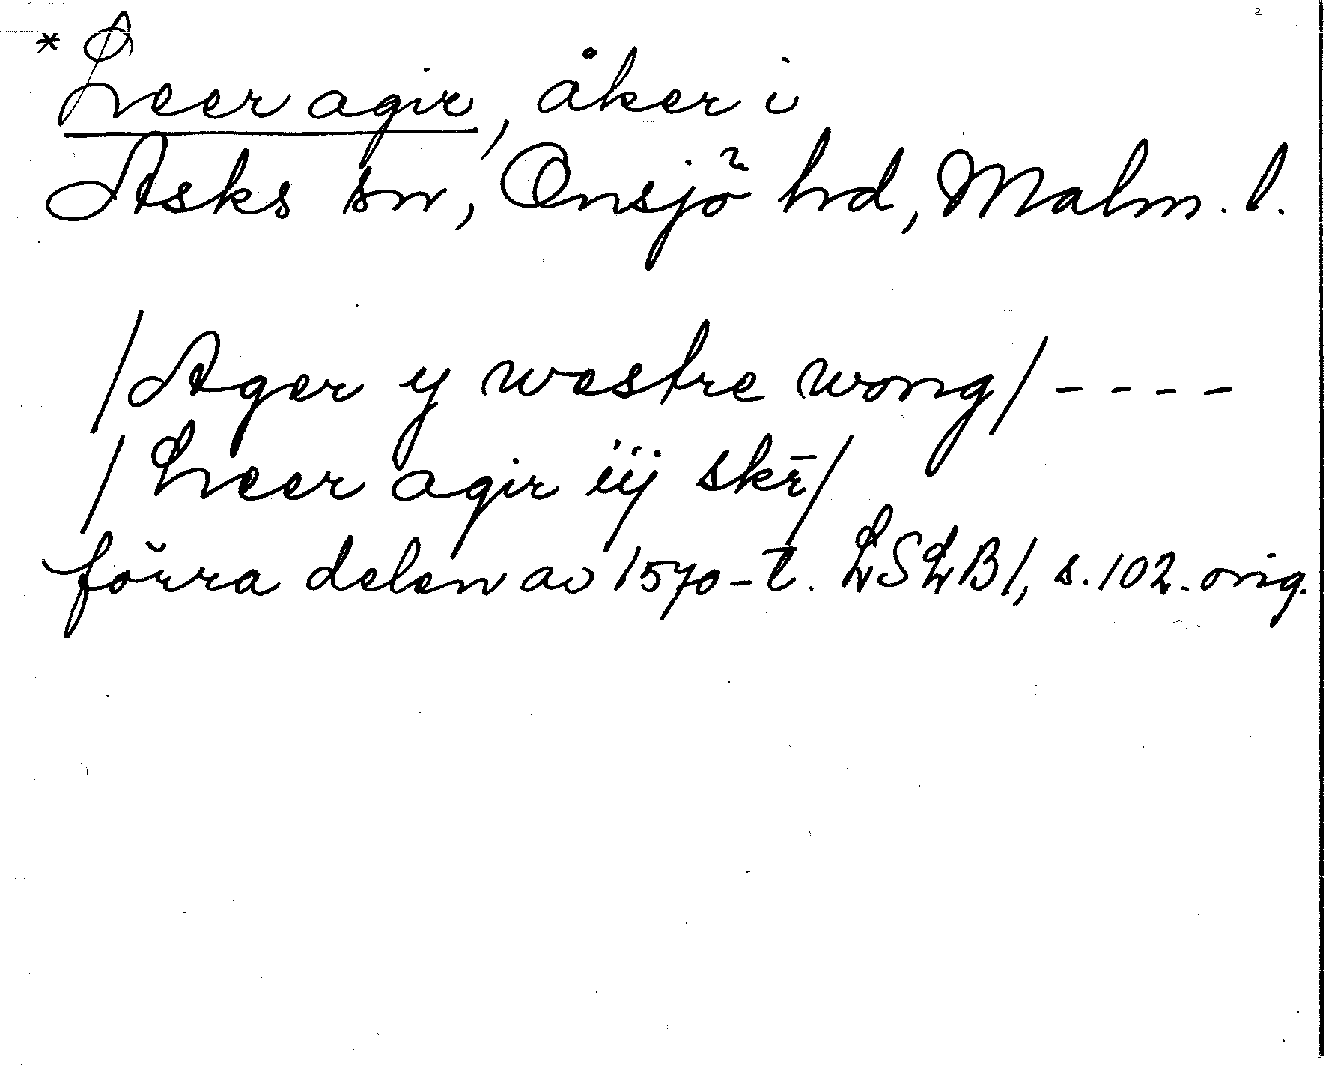 * Leer agir, åker i
Asks sn, Onsjö hd, Malm. l.
/Ager y westre wong/ ----
/Leer agir iij skr̄/
förra delen av 1570-t. LSLB1, s. 102. orig.